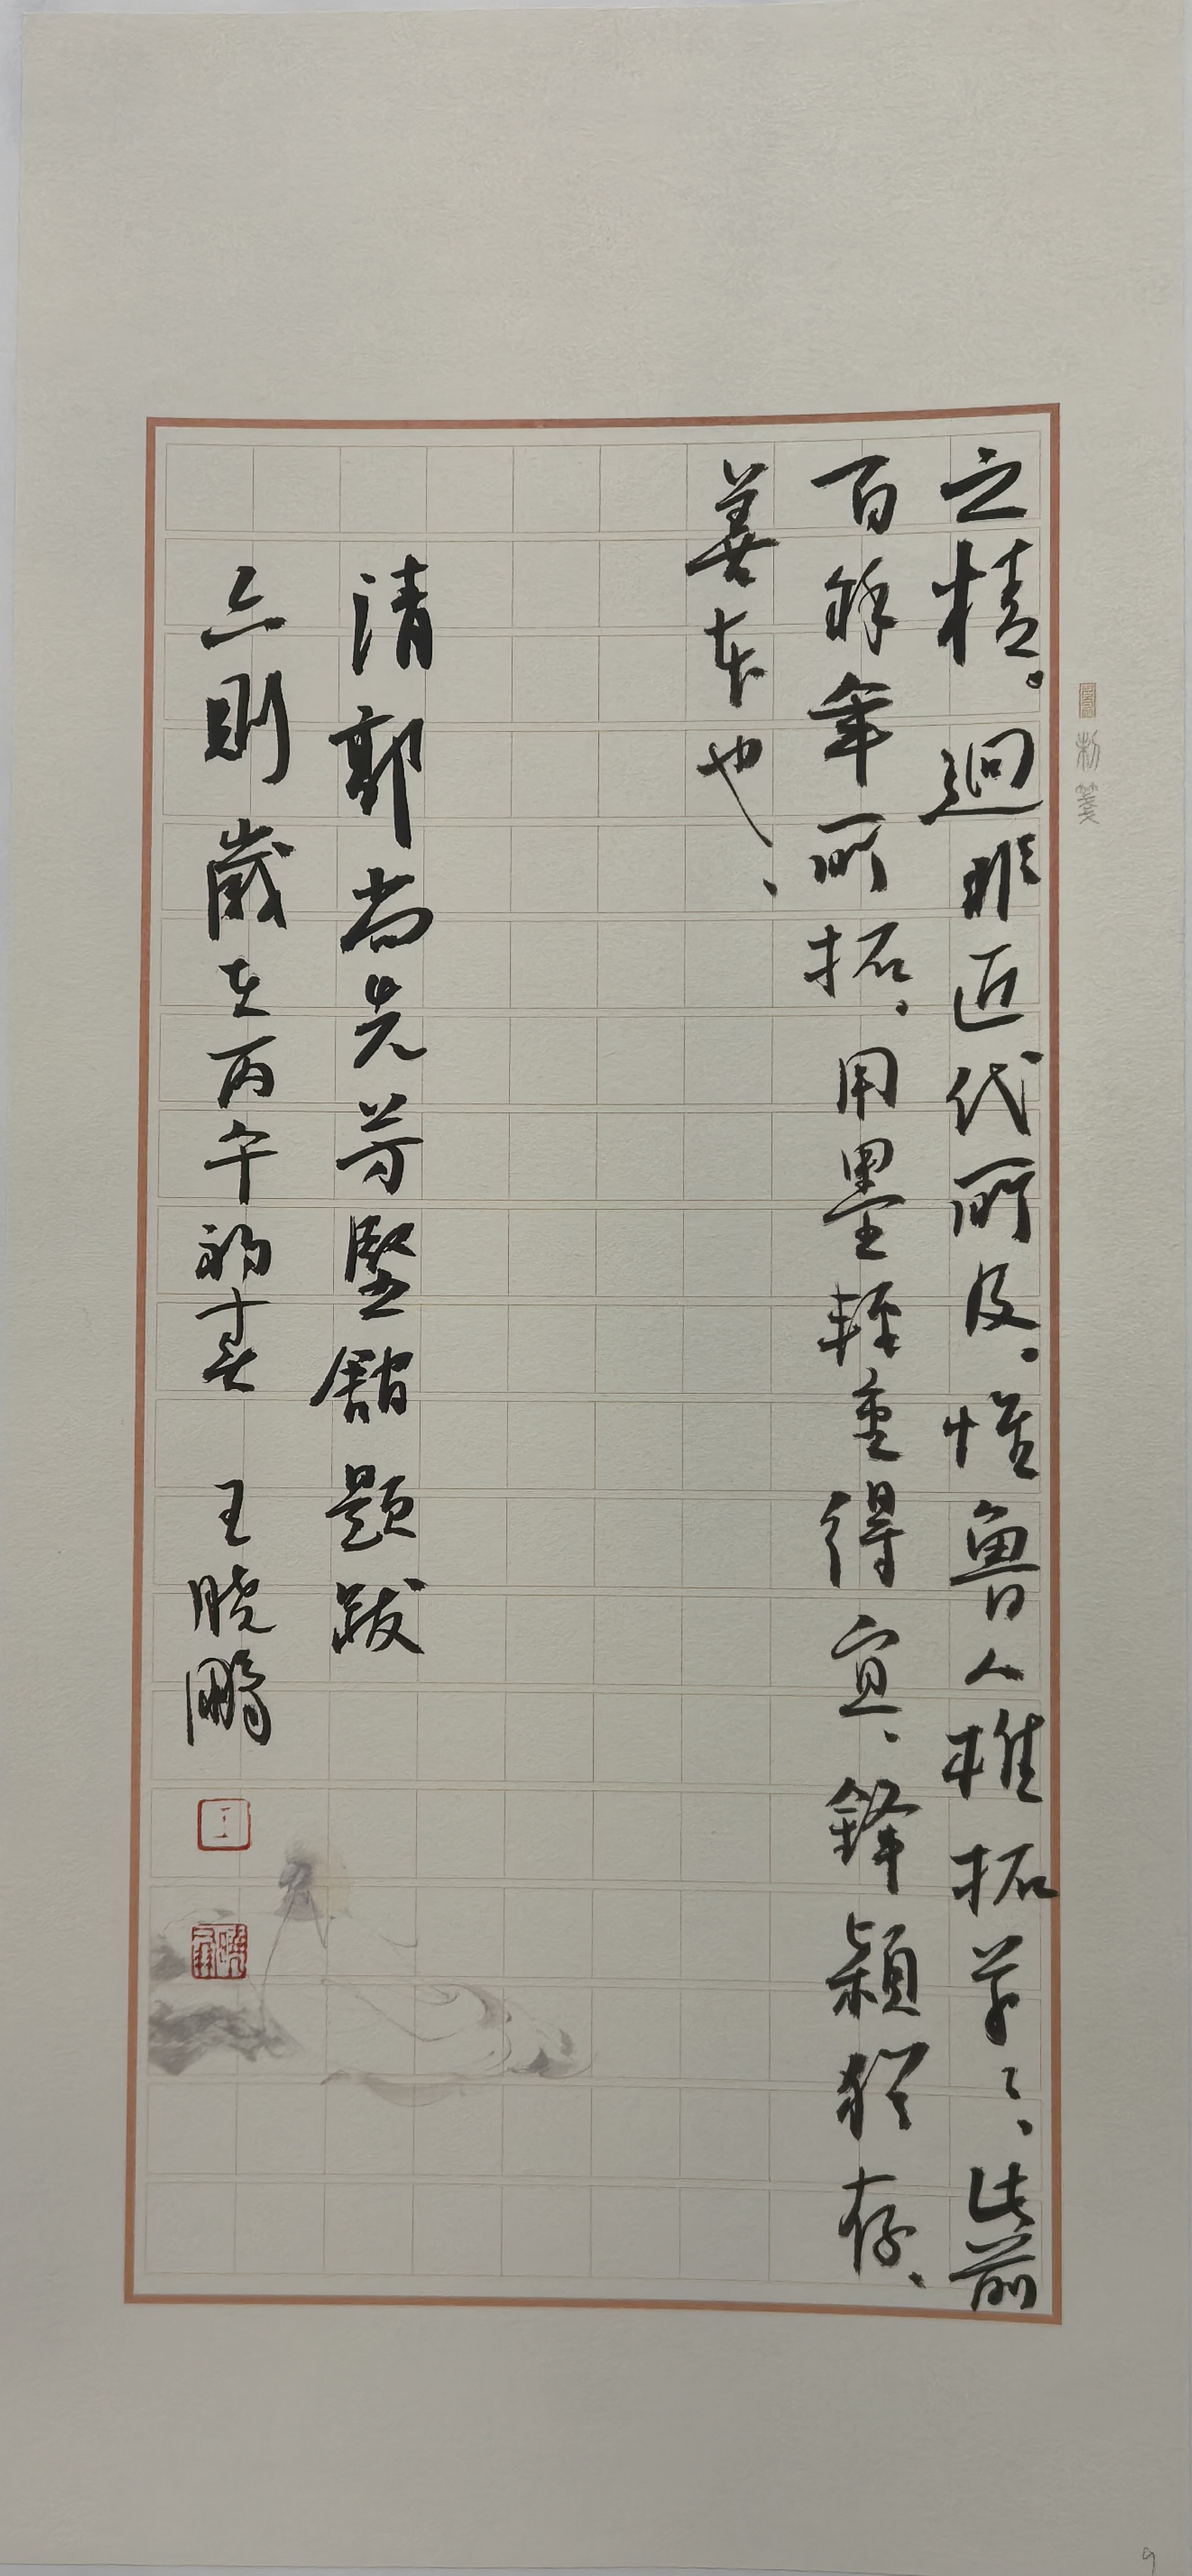 之精。迥非近代所及。惟魯人椎拓草々、此前
百餘年所拓。用墨輕重得宜、鋒穎猶存、
善本也、
清郭尚先芳堅舘題跋
六則 歲在丙午初春 王晓鵬
王
制箋
9